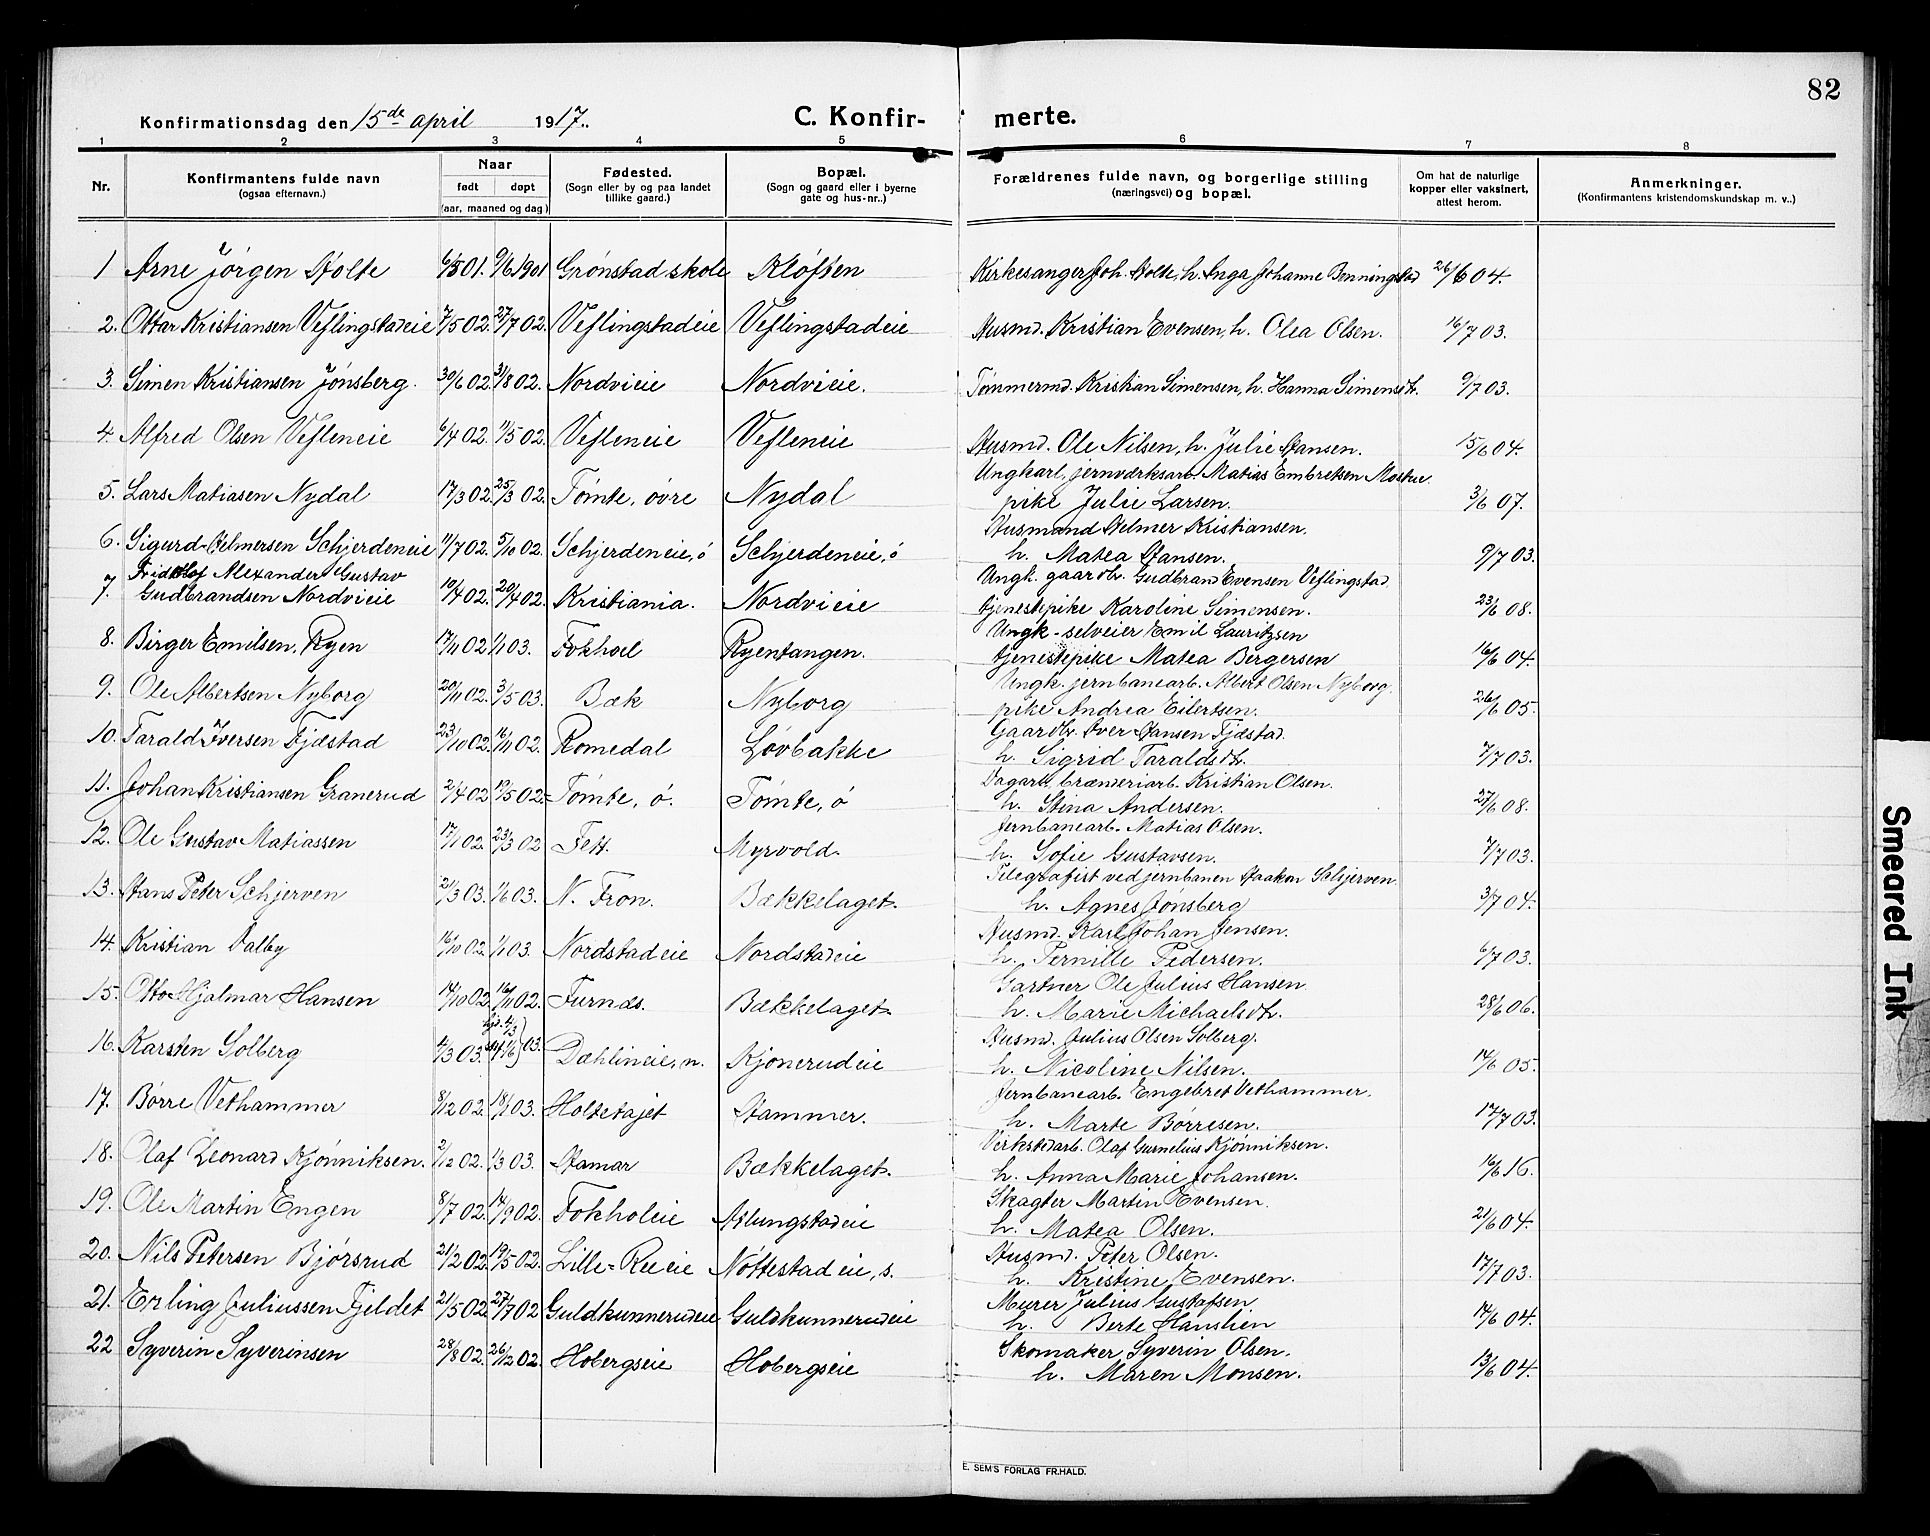 82
Konfirmationsdag den 15de april 1917.
C. Konfir- merte.
1 2 3 4 5 6 7 8
Nr. Konfirmantens fulde navn (ogsaa efternavn.) Naar født døpt (aar, maaned og dag) Fødested. (Sogn eller by og paa landet tillike gaard.) Bopæl. (Sogn og gaard eller i byerne gate og hus-nr..) Forældrenes fulde navn, og borgerlige stilling (næringsvei) og bopæl. Om hat de naturlige kopper eller vaksinert, attest herom. Anmerkninger. (Konfirmantens kristendomskundskap m. v..)
1 Arne Jörgen Holte 6/5 01. 9/6 1901 Grönstad skole Klöften Kirkesanger Joh. Holte, h. Inga Johanne Benningstad 26/6 04.
2. Ottar Kristiansen Veflingstadeie 7/5 02. 27/7 02. Veflingstadeie Veflingstadeie Husmd. Kristian Evensen, h. Olea Olsen. 16/7 03.
3. Simen Kristiansen Jönsberg. 30/6 02. 31/8 02. Nordvieie Nordvieie. Tömmermd. Kristian Simensen, h. Hanna Simensdt. 9/7 03.
4. Alfred Olsen Vefleneie 6/4 02. 11/5 02. Vefleneie Vefleneie Husmd. Ole Nilsen, h. Julie Hansen. 15/6 04.
5. Lars Matiasen Nydal 17/3 02. 25/3 02. Tömte, övre Nydal Ungkarl, jernværksarb. Matias Embretsen Mostue
pike Julie Larsen. 3/6 07.
6. Sigurd Helmersen Schjerdeneie 11/7 02. 5/10 02. Schjerdeneie, ö Schjerdeneie, ö Husmand Helmer Kristiansen.
h. Matea Hansen. 9/7 03.
7. Fridtlof Alexander Gustav
Gudbrandsen Nordvieie 19/4 02. 20/4 02. Kristiania. Nordvieie Ungk. gaardbr. Gudbrand Evensen Veflingstad
tjenestepike Karoline Simensen. 23/6 08.
8. Birger Emilsen Ryen 17/11 02. 1/1 03. Fokhol Ryentangen. Ungk. selveier Emil Lauritzsen
tjenestepike Matea Bergersen 16/6 04.
9. Ole Albertsen Nyborg 20/11 02. 3/5 03. Bæk Nyborg Ungk. jernbanearb. Albert Olsen Nyborg,
pike Andrea Eilertsen. 26/6 05.
10. Tarald Iversen Fjæstad 23/10 02. 16/11 02. Romedal Lövbakke Gaardbr. Iver Hansen Fjæstad.
h. Sigrid Taraldsdt. 7/7 03.
11. Johan Kristiansen Granerud 2/4 02 19/5 02. Tömte, ö. Tömte, ö Dagarb. brænderiarb. Kristian Olsen.
h. Stina Andersen. 27/6 08.
12. Ole Gustav Matiassen 17/1 02. 23/3 02 Fett. Myrvold. Jernbanearb. Matias Olsen.
h. Sofie Gustavsen. 7/7 03.
13. Hans Peter Schjerven 21/3 03. 1/6 03. N. Fron. Bækkelaget. Telegrafist ved jernbanen Haakon Schjerven
h. Agnes Jönsberg 3/7 04.
14. Kristian Dalby 16/10 02. 1/1 03. Nordstadeie Nordstadeie Husmd. Karl Johan Jensen.
h. Pernille Pedersen. 6/7 03.
15. Otto Hjalmar Hansen 14/10 02. 16/11 02. Furnæs. Bækkelaget. Gartner Ole Julius Hansen
h. Marie Michaelsdt. 28/6 06.
16. Karsten Solberg 4/3 03. hjd. 4/3 1/6 03. Dæhlineie, n. Kjonerudeie Husmd. Julius Olsen Solberg.
h. Nicoline Nilsen. 14/6 05.
17. Börre Vethammer 8/12 02. 18/1 03. Holtetajet Hammer. Jernbanearb. Engebret Vethammer.
h. Marte Börresen. 17/7 03.
18. Olaf Leonard Kjönniksen. 2/12 02. 1/3 03. Hamar Bækkelaget. Verkstedarb. Olaf Gurnelius Kjönniksen.
h. Anna Marie Johansen. 16/6 16.
19. Ole Martin Engen 8/7 02. 14/9 02. Fokholeie Aslungstadeie Skagter Martin Evensen.
h. Matea Olsen. 21/6 04.
20. Nils Petersen Bjørsrud 21/2 02. 19/5 02. Lille-Rueie Nöttestadeie, s. Husmd. Peter Olsen.
h. Kristine Evensen. 17/7 03.
21. Erling Juliussen Fjeldet 21/5 02. 27/7 02 Guldkunnerudeie Guldkunnerudeie Murer Julius Gustafsen
h. Berte Hanslien 14/6 04.
22 Syverin Syverinsen 28/8 02. 26/12 02. Hobergseie Hobergseie Skomaker Syverin Olsen.
h. Maren Monsen. 13/6 04.
E. SEM'S FORLAG FR.HALD.
Smeared Ink